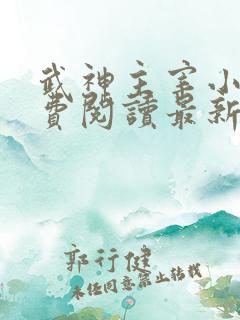 武神主宰小
費閱讀最新
郭行健
未經同意禁止轉載